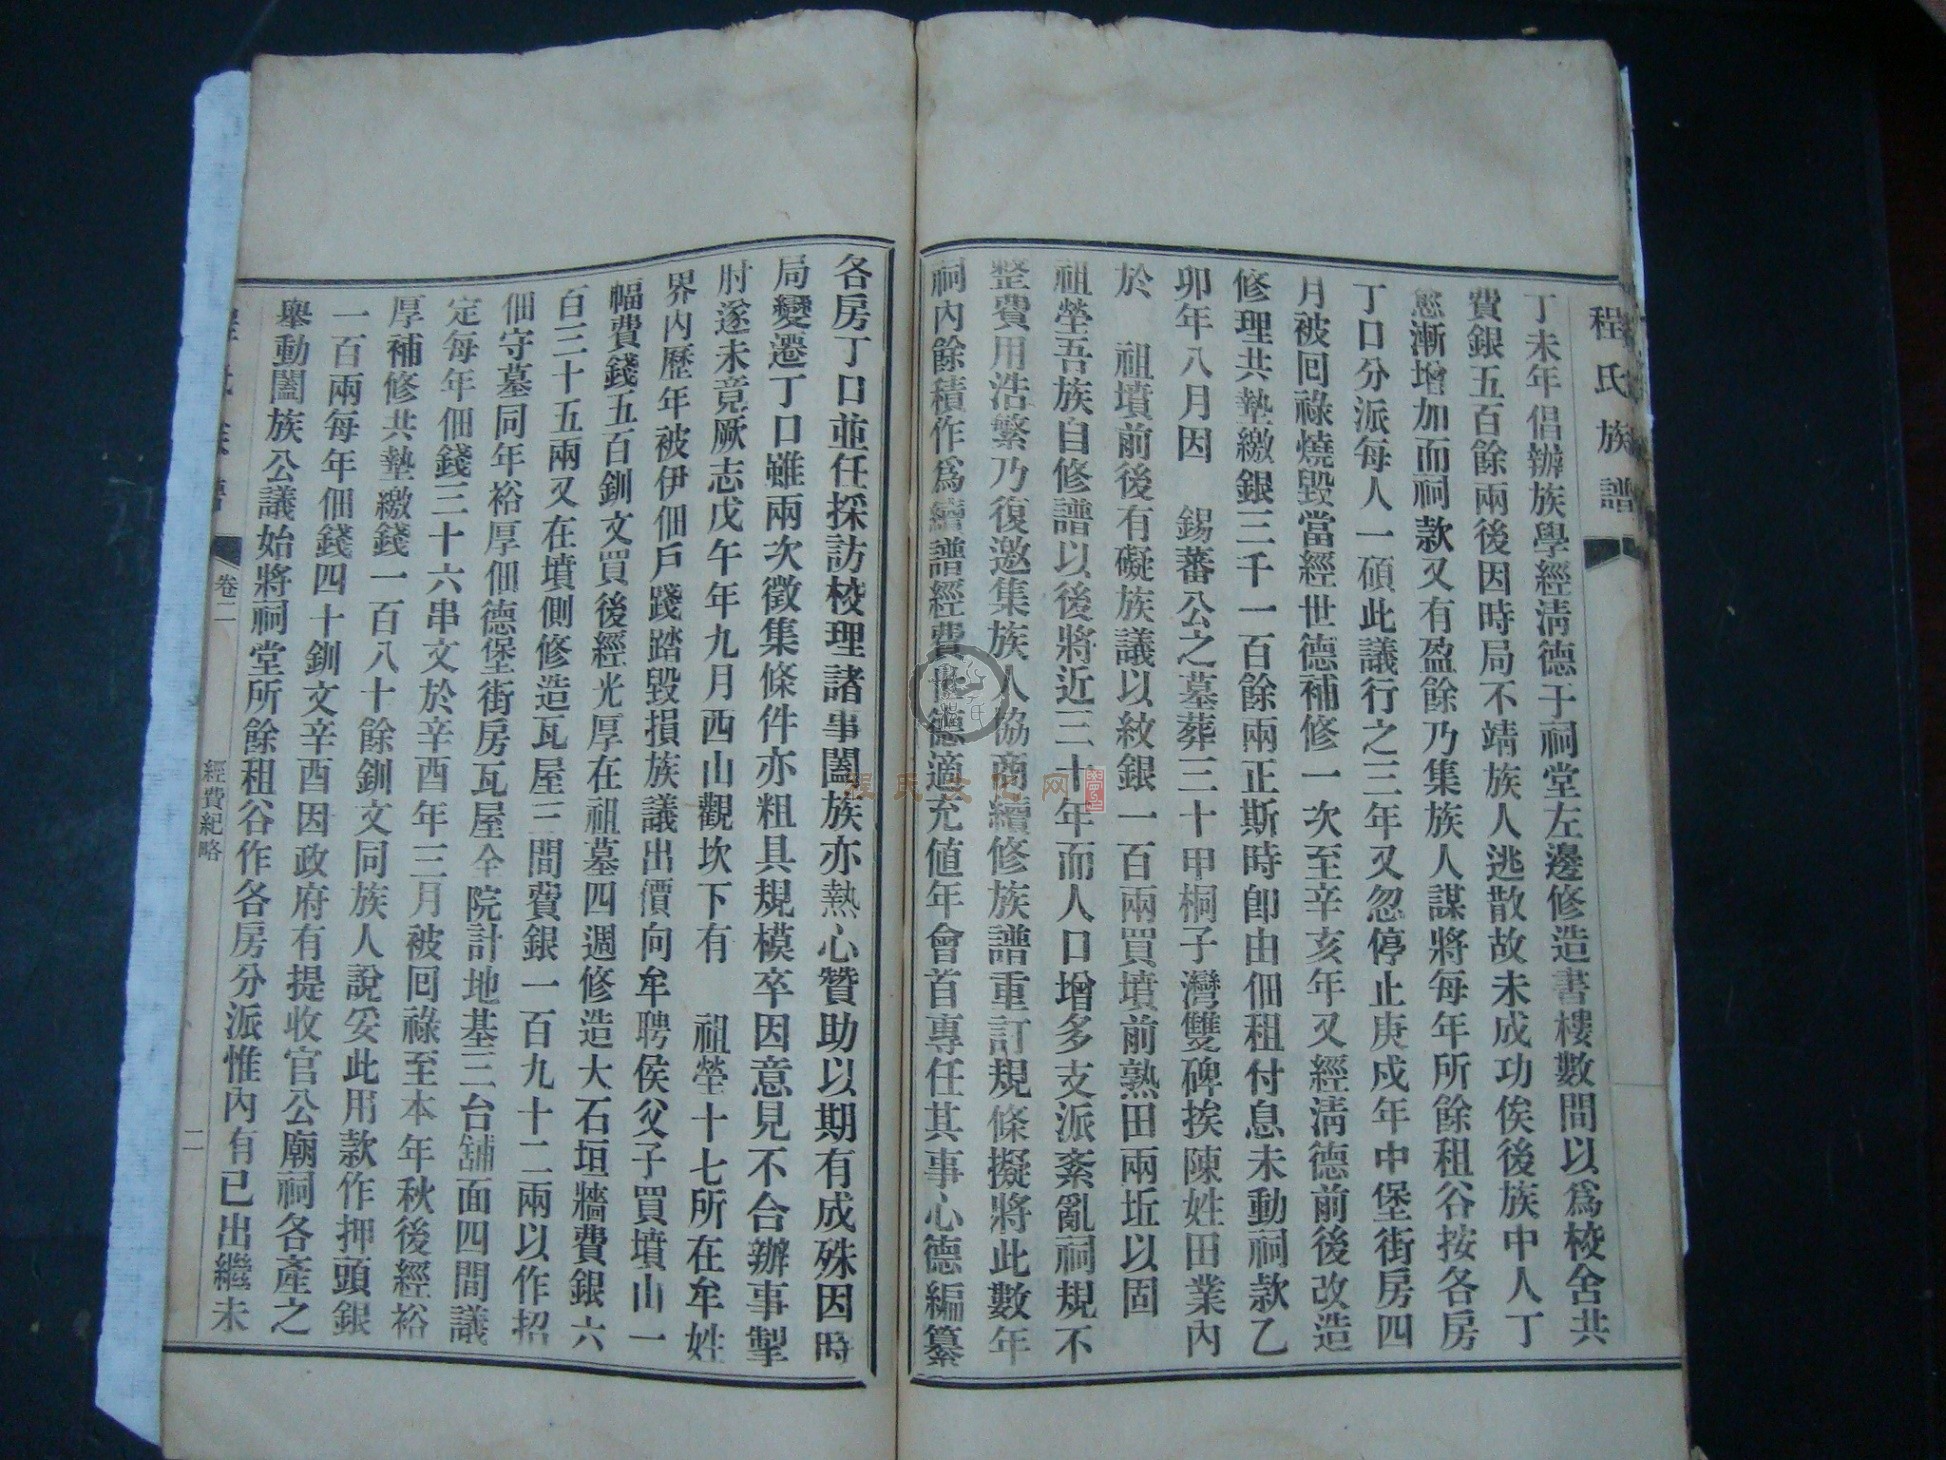 程氏族譜
丁未年倡辦族學經淸德于祠堂左邊修造書樓數間以爲校舍共
費銀五百餘兩後因時局不靖族人逃散故未成功俟後族中人丁
慾漸增加而祠款又有盈餘乃集族人謀將每年所餘租谷按各房
丁口分派每人一碩此議行之三年又忽停止庚戍年中堡街房四
月被回祿燒毀當經世德補修一次至辛亥年又經淸德前後改造
修理共墊繳銀三千一百餘兩正斯時卽由佃租付息未動祠款乙
卯年八月因　錫蕃公之墓葬三十甲桐子灣雙碑挨陳姓田業內
於　祖墳前後有礙族議以紋銀一百兩買墳前熟田兩坵以固
祖塋吾族自修譜以後將近三十年而人口增多支派紊亂祠規不
整費用浩繁乃復邀集族人協商續修族譜重訂規條擬將此數年
祠內餘積作爲續譜經費世德適充値年會首專任其事心德編纂
各房丁口並任採訪校理諸事闔族亦熱心贊助以期有成殊因時
局變遷丁口雖兩次徵集條件亦粗具規模卒因意見不合辦事掣
肘遂未竟厥志戊午年九月西山觀坎下有　祖塋十七所在牟姓
界內歷年被伊佃戶踐踏毀損族議出價向牟聘侯父子買墳山一
幅費錢五百釧文買後經光厚在祖墓四週修造大石垣牆費銀六
百三十五兩又在墳側修造瓦屋三間費銀一百九十二兩以作招
佃守墓同年裕厚佃德堡街房瓦屋全院計地基三台舖面四間議
定每年佃錢三十六串文於辛酉年三月被回祿至本年秋後經裕
厚補修共墊繳錢一百八十餘釧文同族人說妥此用款作押頭銀
一百兩每年佃錢四十釧文辛酉因政府有提收官公廟祠各產之
舉動闔族公議始將祠堂所餘租谷作各房分派惟內有已出繼未
卷二
經費紀略
二
程氏文化网